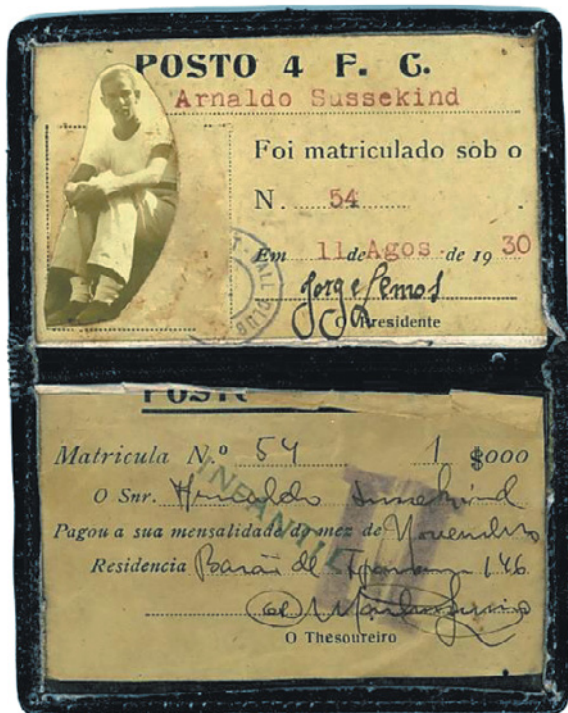 POSTO 4 F. C.
Arnaldo Sussekind
Foi matriculado sob o
N. 54
Em 11 de Agos. de 19 30
Jorge Lemos
O Presidente
POSTO
Matricula N.º 54 1 $000
O Snr. Arnaldo Sussekind
Pagou a sua mensalidade do mez de Novembro
INFANTIL
Residencia Barão de Ipanema 146
O Thesoureiro